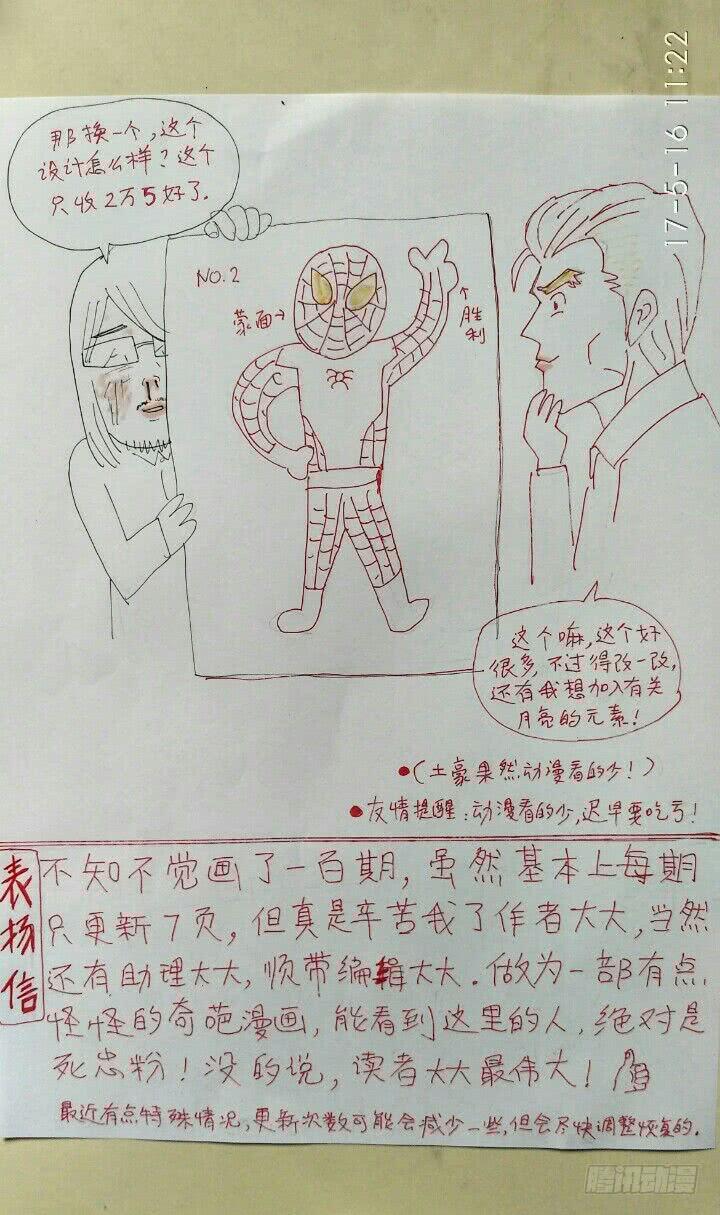 17-5-16 11:22
那换一个,这个
设计怎么样?这个
只收2万5好了.
NO.2
蒙面→
↑
胜
利
这个嘛,这个好
很多,不过得改一改,
还有我想加入有关
月亮的元素!
•(土豪果然动漫看的少!)
•友情提醒:动漫看的少,迟早要吃亏!
表扬信
不知不觉画了一百期,虽然基本上每期
只更新7页,但真是辛苦我了作者大大,当然
还有助理大大,顺带编辑大大.做为一部有点
怪怪的奇葩漫画,能看到这里的人,绝对是
死忠粉!没的说,读者大大最伟大!
最近有点特殊情况,更新次数可能会减少一些,但会尽快调整恢复的.
腾讯动漫